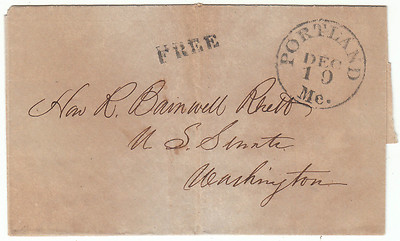 FREE
PORTLAND
DEC
19
Me.
Hon R. Barnwell Rhett
U. S. Senate
Washington